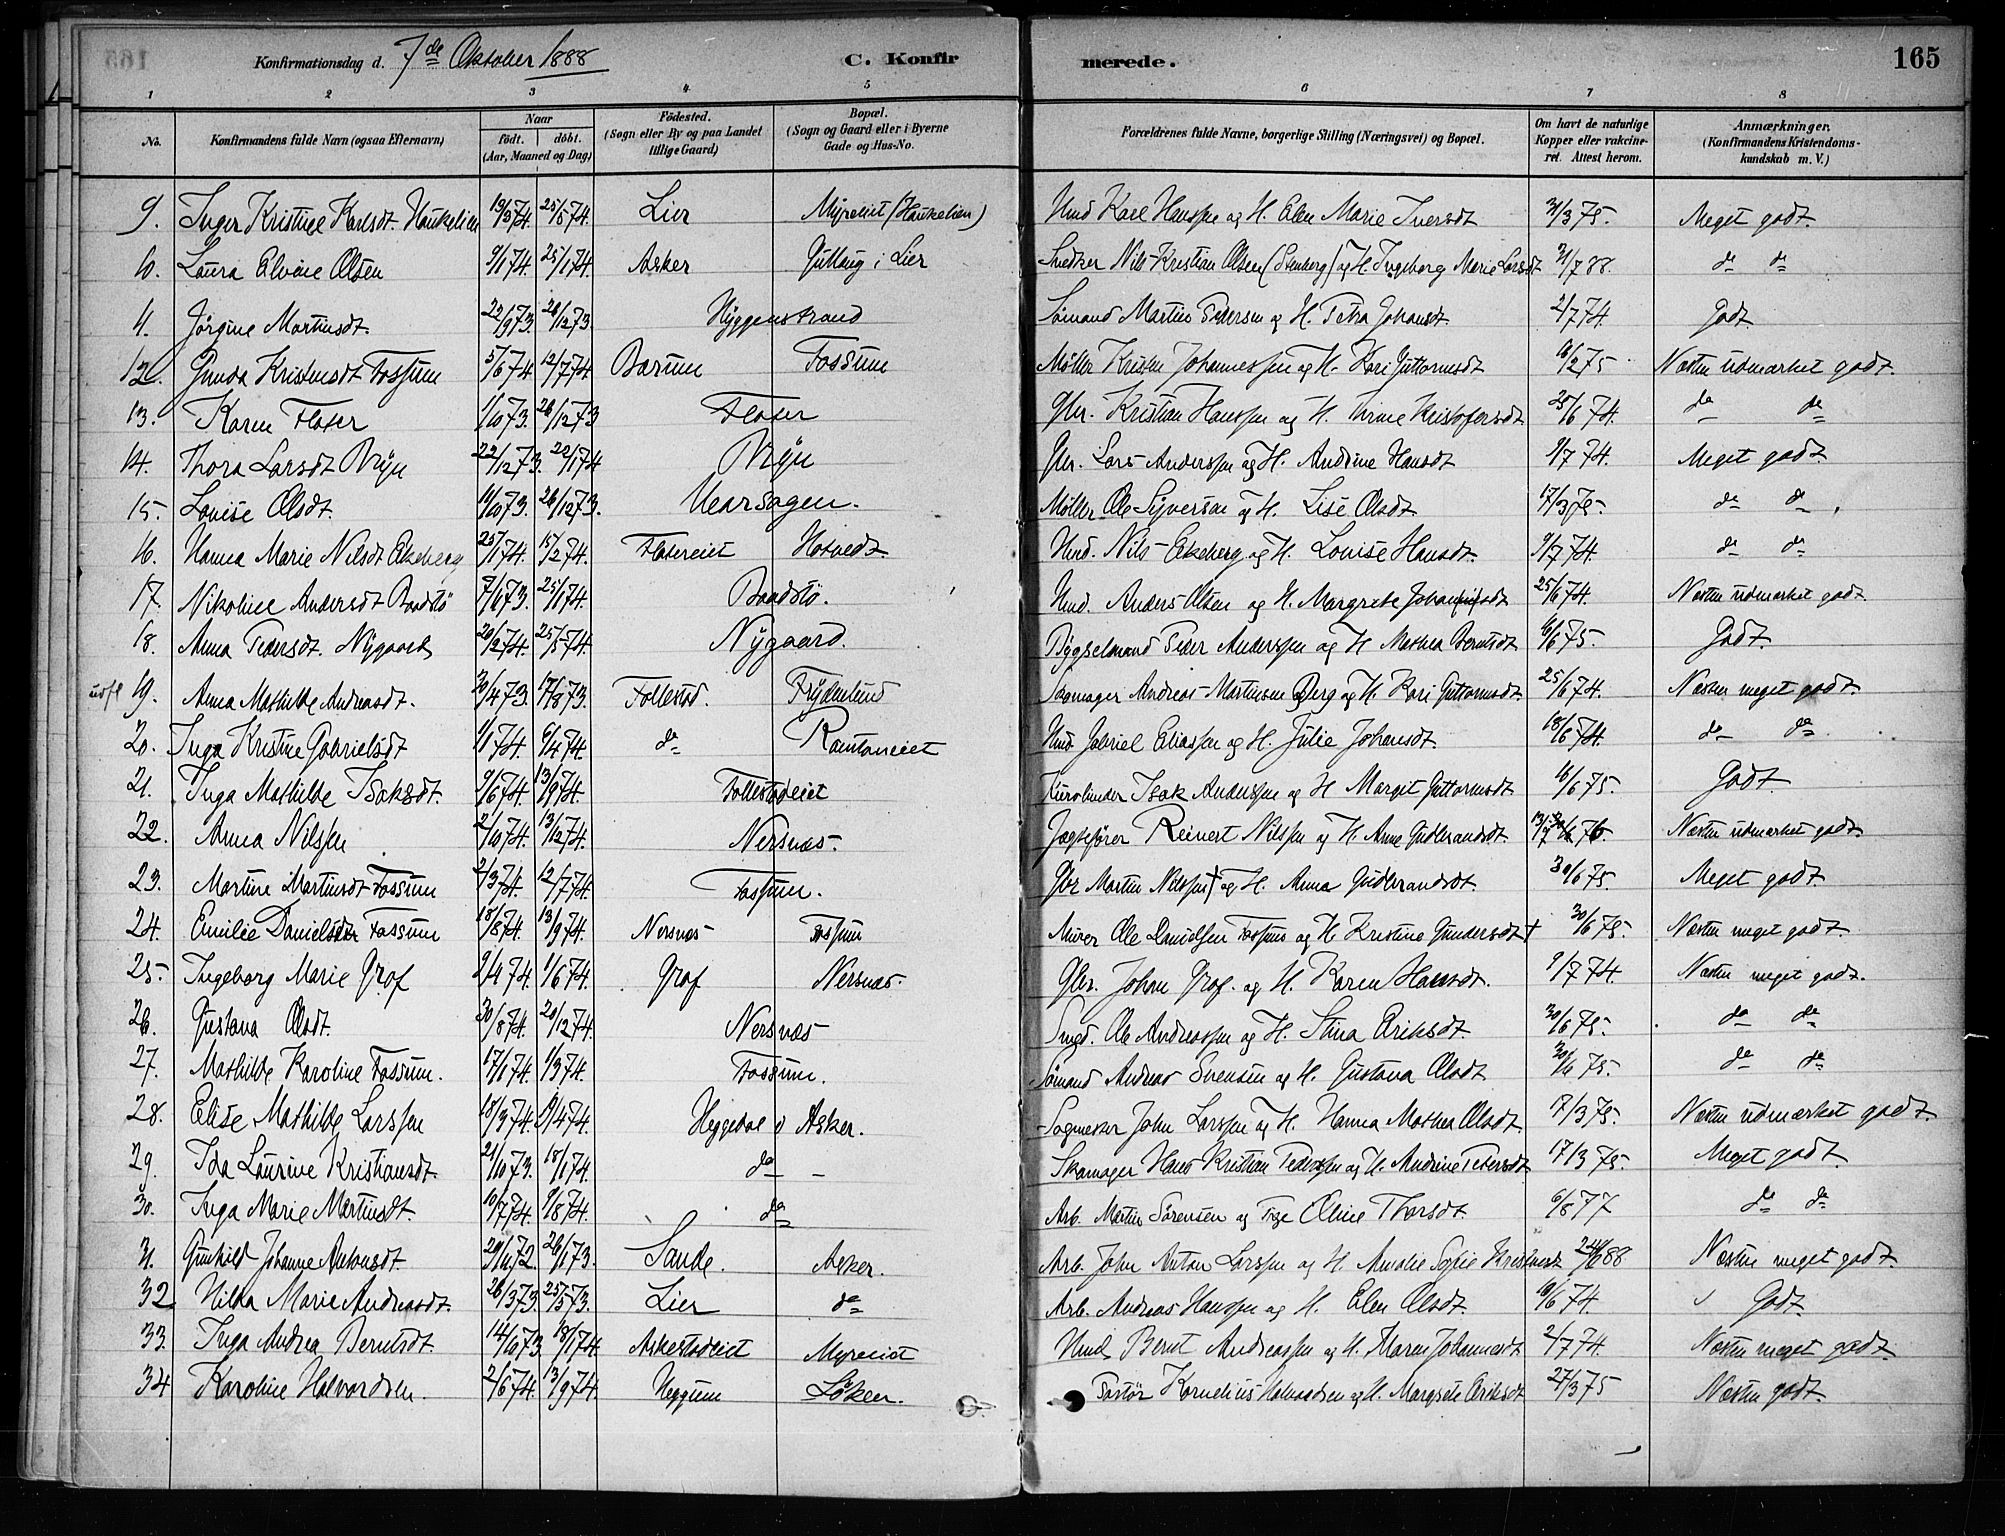 165
Konfirmationsdag d. 7de Oktober 1888 C. Konfirmerede.
1 2 3 4 5 6 7 8
No. Konfirmandens fulde Navn (ogsaa Efternavn) Naar født. døbt. (Aar, Maaned og Dag) Fødested. (Sogn eller By og paa Landet tillige Gaard) Bopæl. (Sogn og Gaard eller i Byerne Gade og Hus-No. Forældrenes fulde Navne, borgerlige Stilling (Næringsvei) og Bopæl. Om havt de naturlige Kopper eller vakcineret. Attest herom. Anmærkninger. (Konfirmandens Kristendomskundskab m. V.)
9. Inger Kristine Karlsdt. Haukelien 19/3 74. 25/5 74. Lier Myreeiet (Haukelien) Hmd Karl Hanssen og H. Elen Marie Iversdt 31/3 75. Meget godt.
10. Laura Elvine Olsen 9/1 74. 25/1 74. Asker Gullaug i Lier Snedker Nils Kristian Olsen (Stenberg) og H. Ingeborg Marie Larsdt 31/7 88. do do
11. Jørgine Martinsdt. 22/9 73. 26/12 73. Hyggenstrand Sømand Martin Pedersen og H. Petra Johansdt. 2/7 74. Godt.
12. Gunda Kristensdt Fossum 5/6 74. 12/7 74. Bærum Fossum Møller Kristen Johannessen og H. Kari Guttormsdt 6/2 75. Næsten udmærket godt.
13. Karen Flater 1/10 73. 26/12 73 Flater Gbr. Kristian Hanssen og H. Kristofersdt 25/6 74. do do
14. Thora Larsdt Røjn 22/12 73. 22/1 74 Røjn Gbr. Lars Anderssen og H. Andrine Hansdt 9/7 74. Meget godt.
15. Lovise Olsdt. 11/10 73. 26/12 73. Hearsagen. Møller Ole Syversen og H. Lise Olsdt 17/3 75. do do
16. Hanna Marie Nilsdt Ekeberg 25/1 74. 15/2 74. Flatereiet Hotvedt Hmd. Nils Ekeberg og H. Lovise Hansdt. 9/7 74. do do
17. Nikoline Andersdt Baadstø 7/11 73. 25/1 74. Baadstø. Hmd. Anders Olsen og H. Margrete Johannisdt 25/6 74. Næsten udmærket godt.
18. Anna Pedersdt. Nygaard 20/2 74. 25/5 74. Nygaard. Bygselmand Peder Anderssen og H. Mathea Berntsdt 6/6 75. Godt.
udfl 19. Anna Mathilde Andreasdt. 30/4 73. 17/8 73. Follestad. Frydenlund Skomager Andreas Martinsen Berg og H. Kari Guttormsdt. 25/6 74. Næsten meget godt.
20. Inga Kristine Gabrielsdt 1/1 74. 6/4 74. do Ramtoneiet Hmd. Gabriel Eliassen og H. Julie Johansdt. 18/6 74. do do
21. Inga Mathilde Isaksdt. 9/6 74. 13/9 74. Follestadeiet Kurvbinder Isak Anderssen og H. Margit Guttormsdt 16/6 75. Godt.
22. Anna Nilssen 2/10 74. 13/12 74. Nersnæs. Jagtefører Reinert Nilssen og H. Anne Gudbrandsdt. Næsten udmærket godt
23. Martine Martinsdt Fossum 2/3 74. 12/7 74. Fossum. Gbr Martin Nilssen † og H. Anna Gudbrandsdt. 30/6 75. Meget godt.
24. Emilie Danielsen Fossum 18/8 74. 13/9 74. Nersnæs Fossum Murer Ole Danielsen Fossum og H. Kristine Gundersdt † 30/6 75. Næsten meget godt.
25. Ingeborg Marie Grof 2/4 74. 1/6 74. Grof Nersnæs. Gbr. Johan Grof og H. Karen Hansdt. 9/7 74. Næsten meget godt.
26. Gustava Olsdt. 30/8 74. 20/12 74. Nersnæs Smed. Ole Andreassen og H. Stina Eriksdt 30/6 75. do do
27. Mathilde Karoline Fossum. 17/1 74. 1/3 74. Fossum. Sømand Andreas Svensen og H. Gustava Olsdt 30/6 75. do do
28. Elise Mathilde Larssen 18/3 74. 19/4 74. Heggedal i Asker. Sagmester John Larssen og H. Hanna Mathea Olsdt. 17/3 75. Næsten udmærket godt.
29. Ida Laurine Kristiansdt. 21/10 73. 18/1 74. do Skomager Hans Kristian Pederssen og H. Andrine Pedersdt 17/3 75. Meget godt.
30. Inga Marie Martinsdt. 10/7 74. 9/8 74. do Arb. Martin Sørensen og Fige Oline Thorsdt. 6/8 77 do do
31. Gunhild Johanne Antonsdt 29/11 72. 26/1 73. Sande. Asker. Arb. John Anton Larssen og H. Amalie Sofie 24/6 88. Næsten meget godt.
32 Hilda Marie Andreasdt. 26/3 73. 25/5 73. Lier do Arb. Andreas Hanssen og H. Elen Olsdt. 16/6 74. Godt.
33. Inga Andrea Berntsdt. 14/10 73. 18/1 74. Askestadeiet Myreeiet Hmd Bernt Andreassen og H. Maren Johannesdt 2/7 74. Næsten meget godt.
34 Karoline Halvordsen. 2/6 74. 13/9 74. Heggum Løken. Kornelius Halvordsen og H. Margrete Eriksdt 27/3 75 Næsten godt.